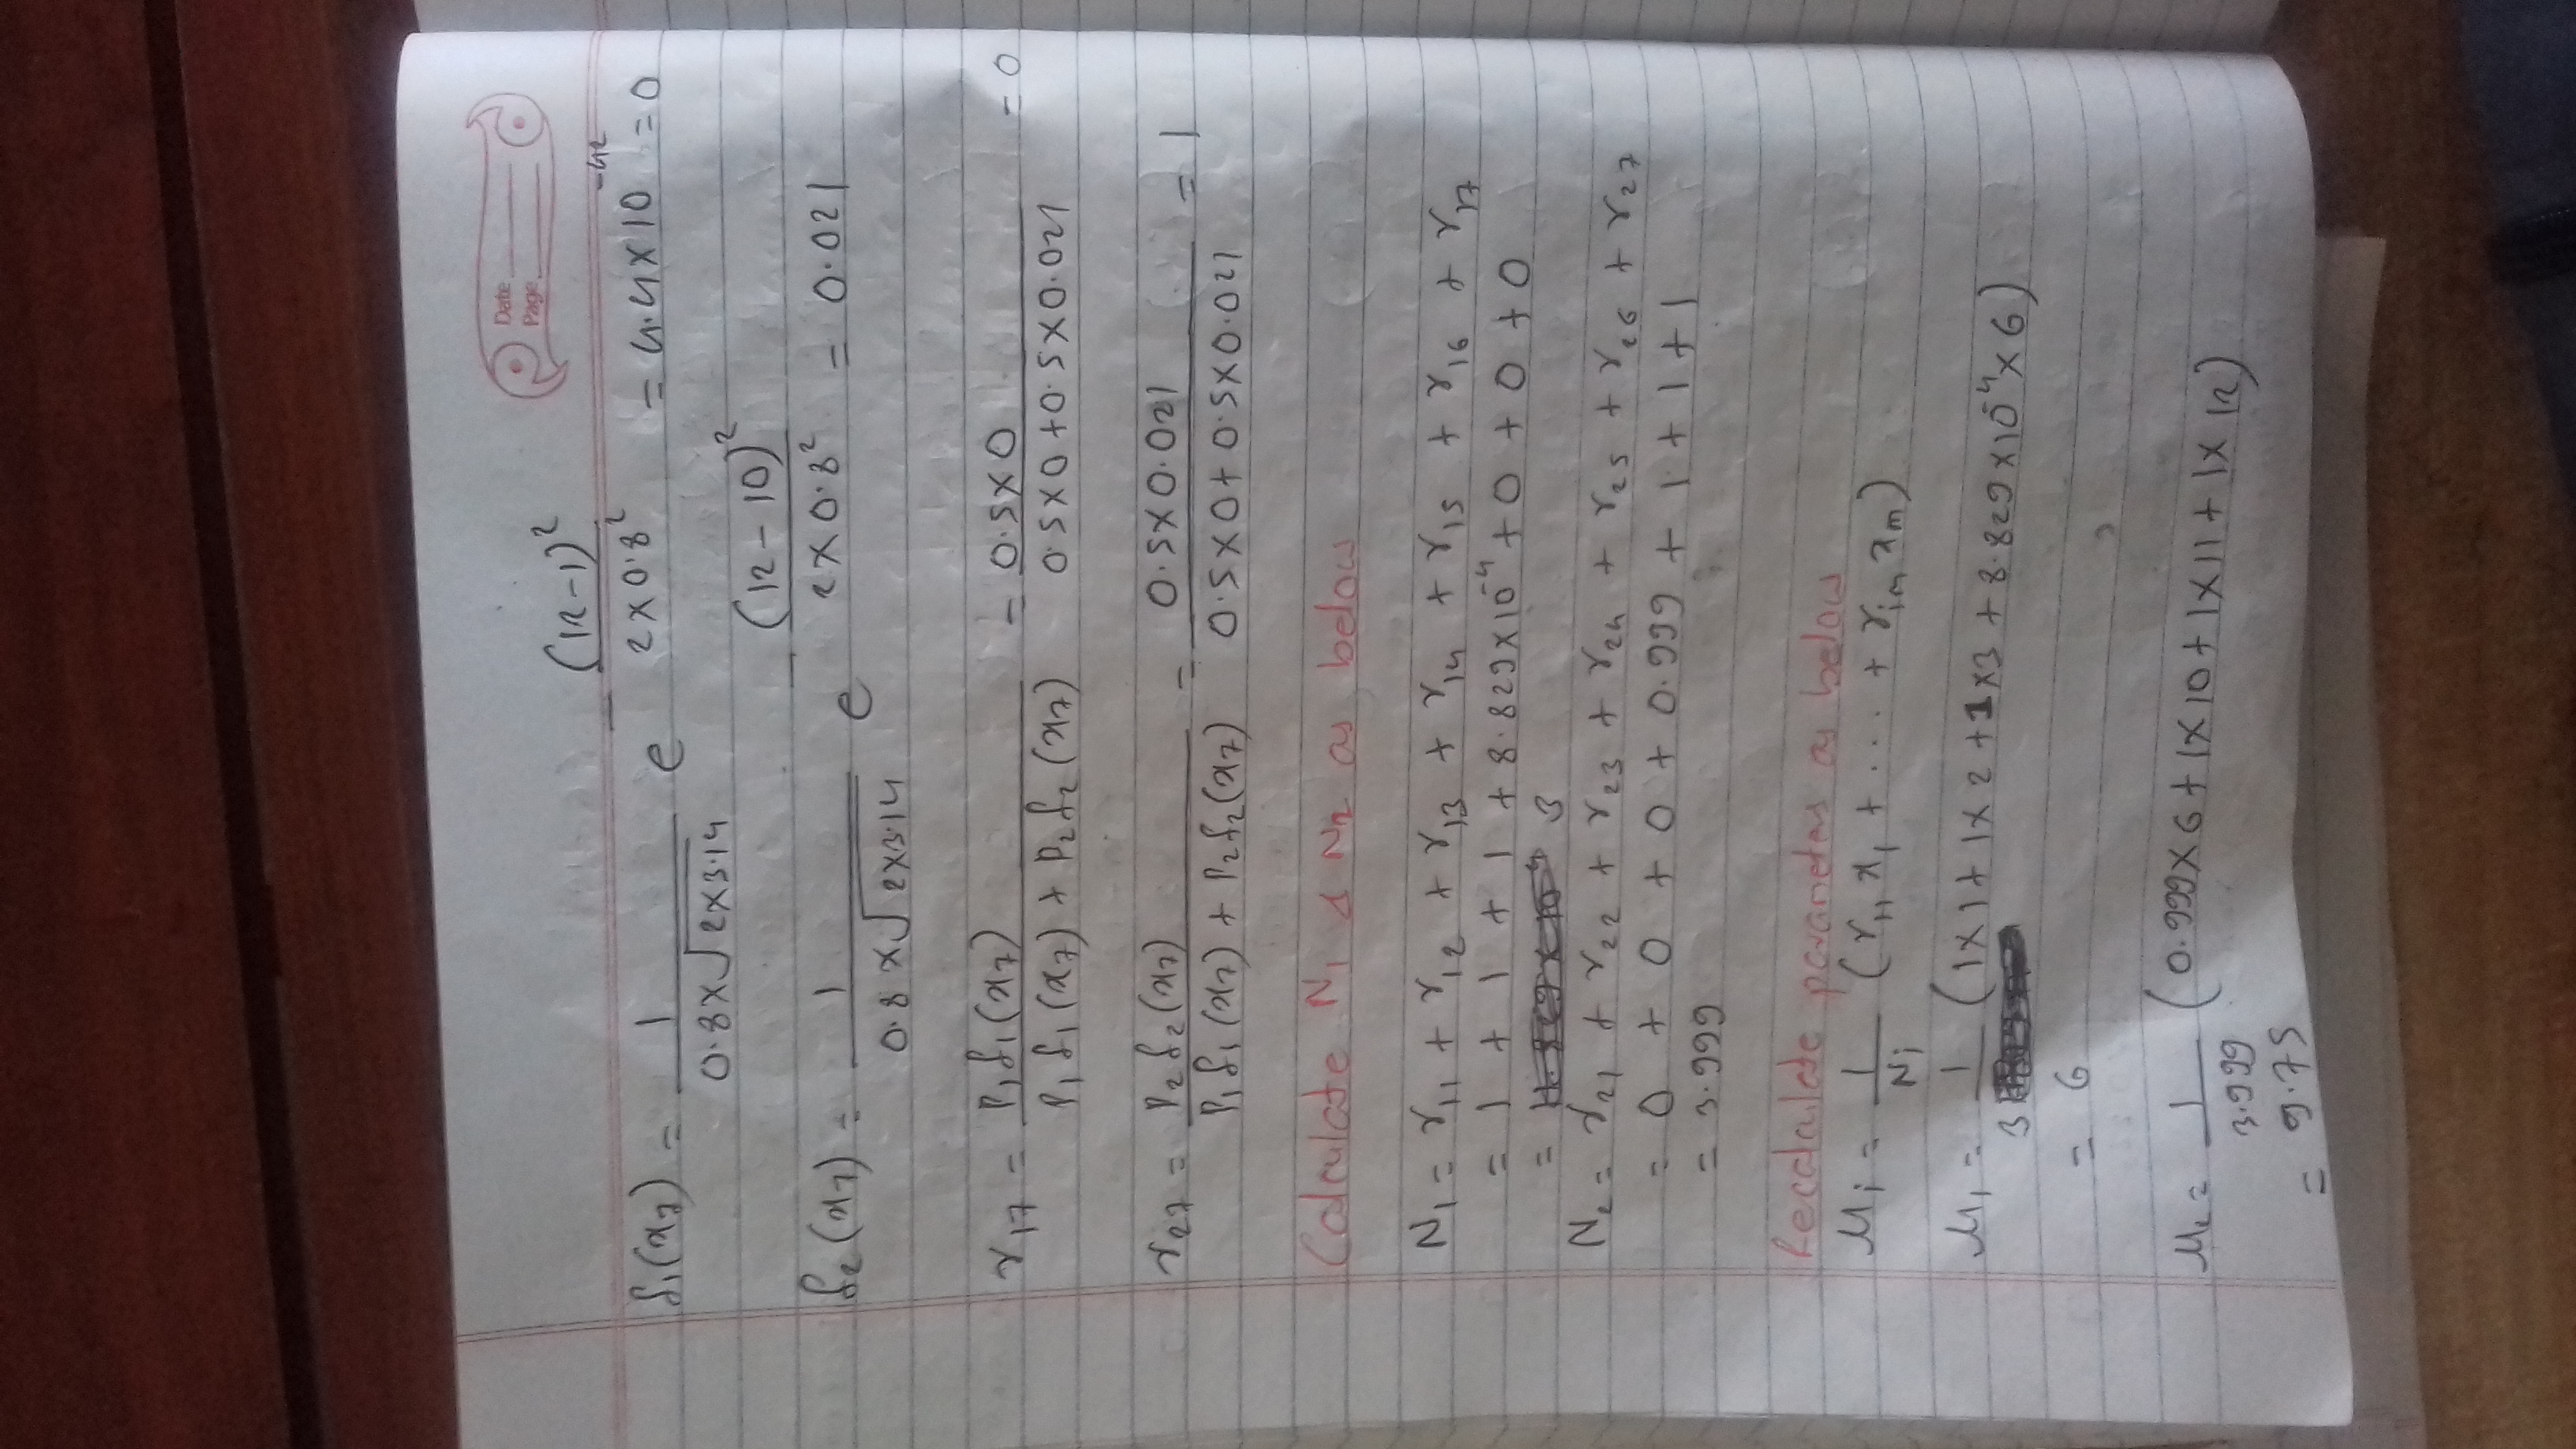 Date
Page
f₁(x₇) = 1 / (0.8×√(2×3.14)) e^(-(12-1)² / (2×0.8²)) = 4.4×10⁻⁴² = 0
f₂(x₇) = 1 / (0.8×√(2×3.14)) e^(-(12-10)² / (2×0.8²)) = 0.021
γ₁₇ = P₁f₁(x₇) / (P₁f₁(x₇) + P₂f₂(x₇)) = 0.5×0 / (0.5×0+0.5×0.021) = 0
γ₂₇ = P₂f₂(x₇) / (P₁f₁(x₇) + P₂f₂(x₇)) = 0.5×0.021 / (0.5×0+0.5×0.021) = 1
Calculate N₁ & N₂ as below
N₁ = γ₁₁ + γ₁₂ + γ₁₃ + γ₁₄ + γ₁₅ + γ₁₆ + γ₁₇
= 1 + 1 + 1 + 8.829×10⁻⁴ + 0 + 0 + 0
= 3
N₂ = γ₂₁ + γ₂₂ + γ₂₃ + γ₂₄ + γ₂₅ + γ₂₆ + γ₂₇
= 0 + 0 + 0 + 0.999 + 1 + 1 + 1
= 3.999
Recalculate parameters as below
μᵢ = 1/Nᵢ (γᵢ₁x₁ + ... + γᵢₙxₙ)
μ₁ = 1/3 (1×1 + 1×2 + 1×3 + 8.829×10⁻⁴×6)
= 6
μ₂ = 1/3.999 (0.999×6 + 1×10 + 1×11 + 1×12)
= 9.75